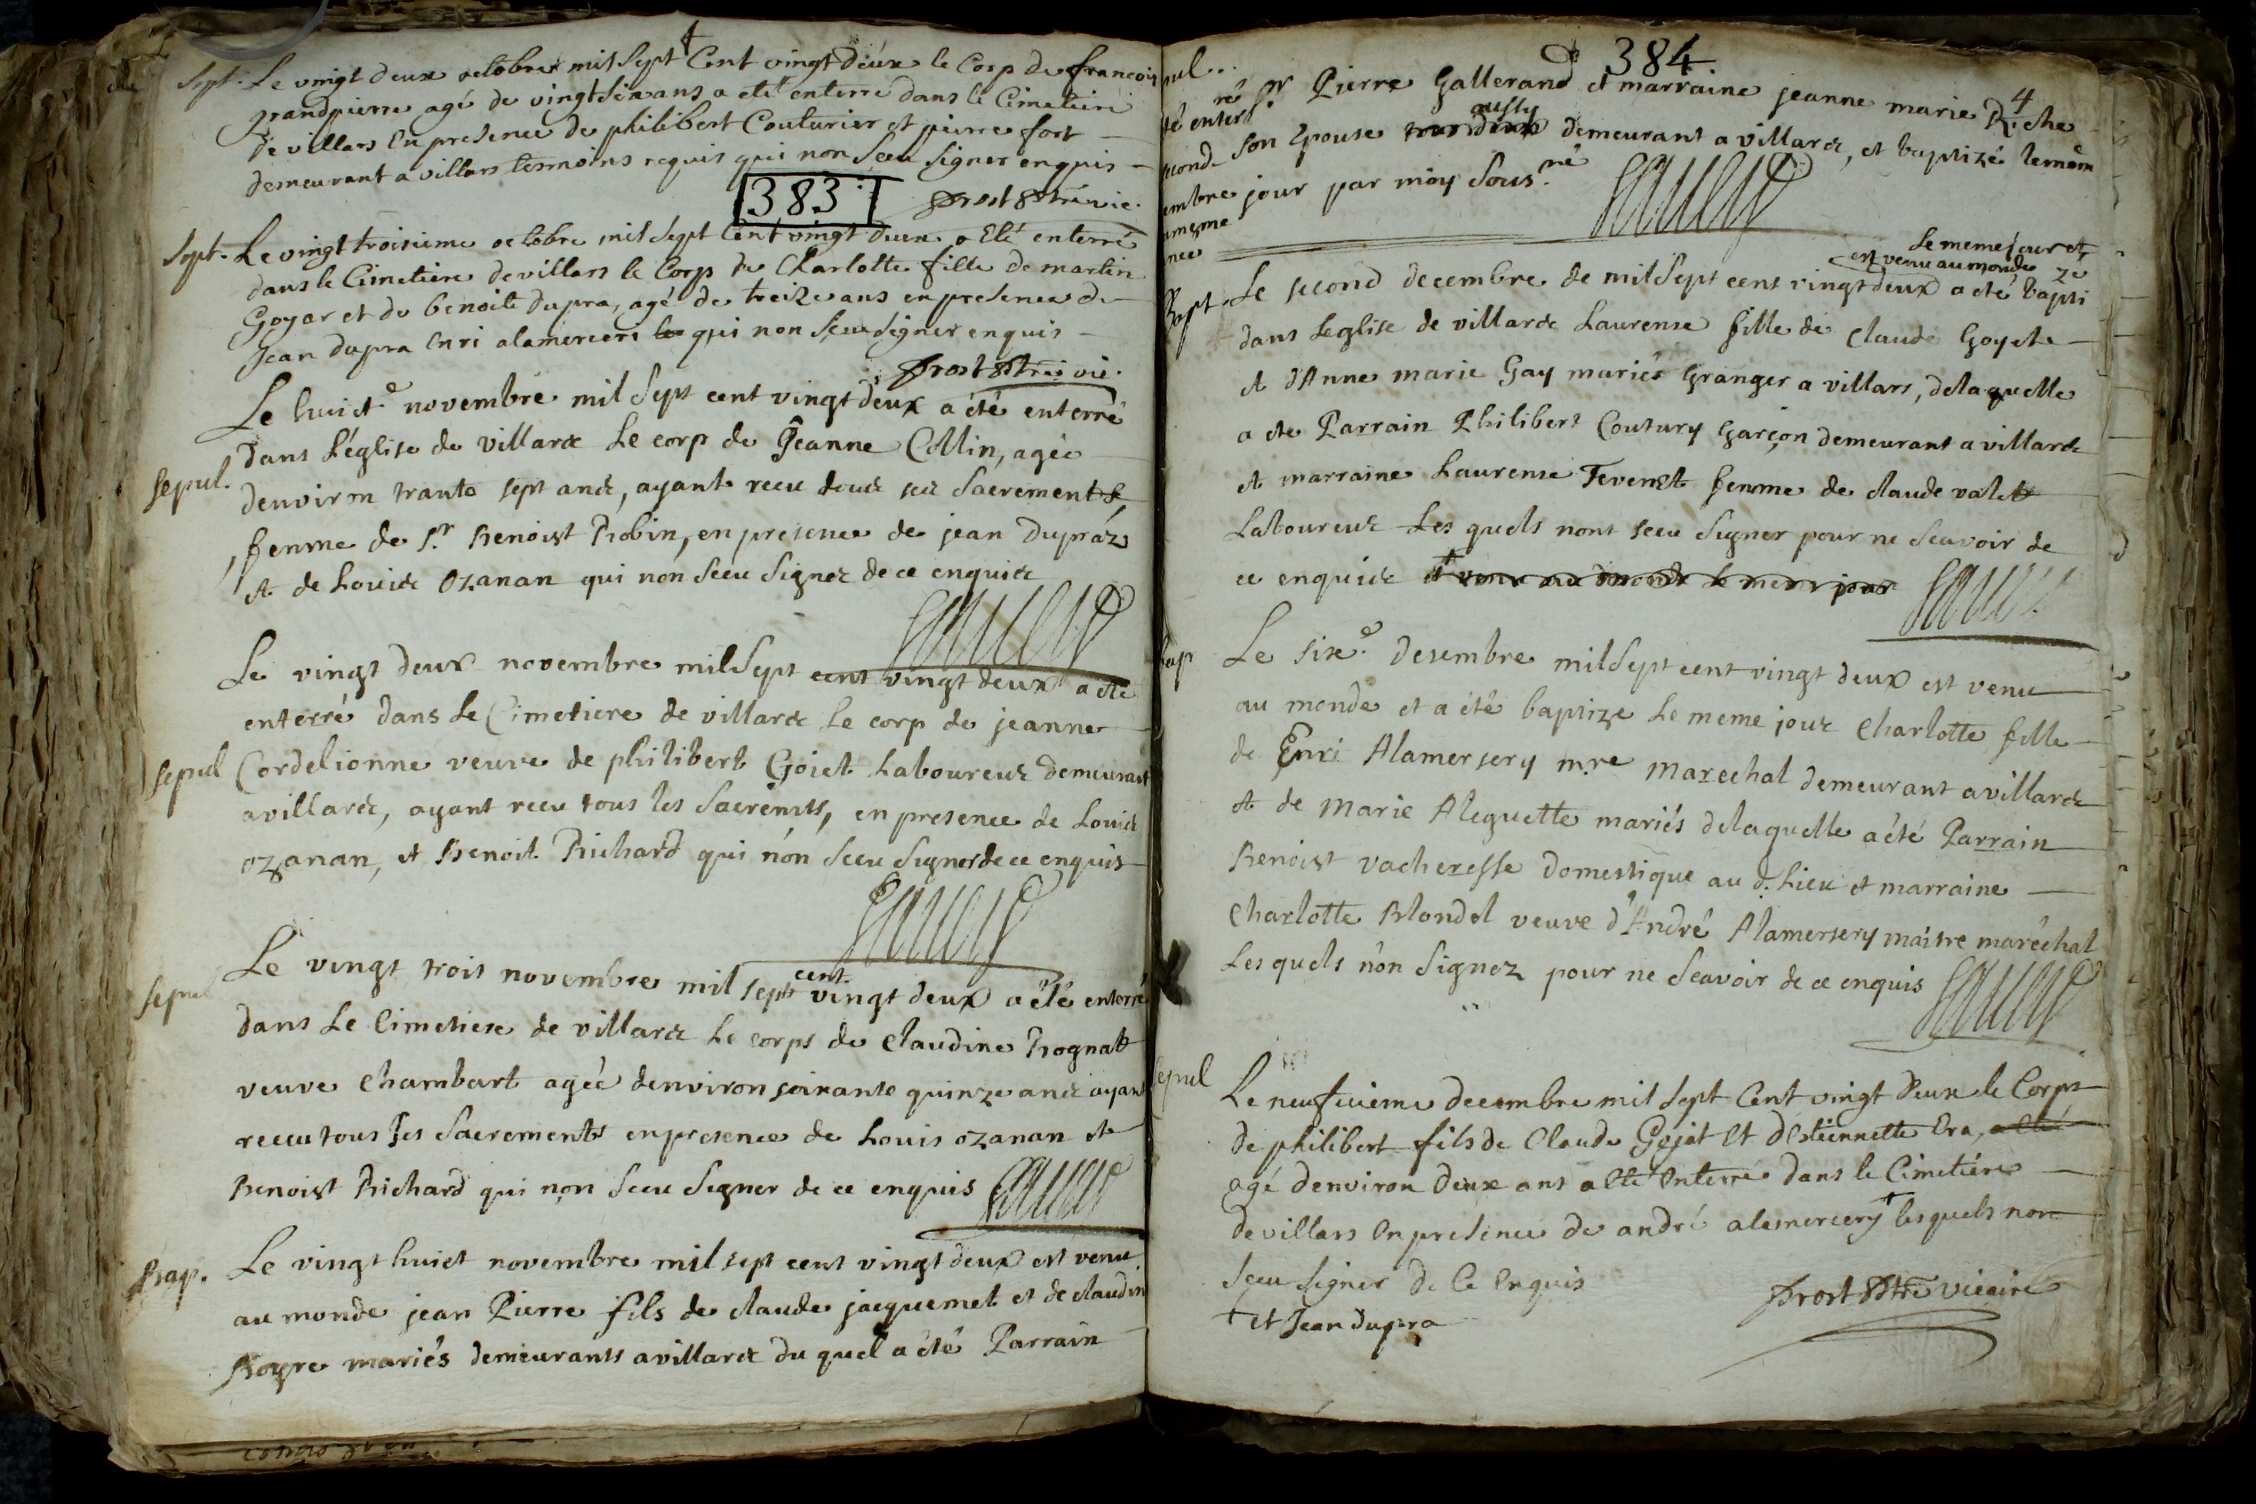 Sept. Le vingt deux octobre mil Sept Cent vingt deux le Corp de francois
grandpierre agé de vingt Six ans a eté enterré dans le Cimetiere
de villars En presence de philibert Couturier et pierre fort
demeurant a villars tesmoins requis qui non Sceu Signer enquis
383
prost ptre vic.
Sept. Le vingt troisieme octobre mil Sept Cent vingt deux a Eté enterré
dans le Cimetiere de villars le Corps de Charlotte fille de martin
Goyar et de benoite dupra, agé de treize ans en presence de
Jean dupra Enri alamercery qui non Sceu Signer enquis
prost ptre vic.
Le huict.e novembre mil Sept cent vingt deux a été enterré
Dans L'église de villars Le corp de Jeanne Collin, agée
sepul. denviron trante sept ans, ayant receu tous ses Sacrements,
femme de S.r Benoist Robin, en presence de jean Dupráz
et de Louis Ozanan qui non Sceu Signer de ce enquis
Le vingt deux novembre mil Sept cent vingt deux a ete
enterré dans Le Cimetiere de villars Le corp de jeanne
sepul Cordelionne veuve de philibert Goiet Laboureur demeurant
a villars, ayant receu tous les Sacremts, en presence de Louis
ozanan, et Benoit Richard qui nón Sceu Signer de ce enquis
sepul Le vingt trois novembre mil sept cent vingt deux a été enterré
dans Le Cimetiere de villars Le corps de Claudine Rognat
veuve Chambart agée denviron soixante quinze ans ayant
receu tous les Sacrements en presence de Louis ozanan et
Benoist Richard qui non Sceu Signer de ce enquis
Bap. Le vingt huict novembre mil sept cent vingt deux est venu
au monde jean Pierre fils de claude jacquemet et de claudin
Royre mariés demeurants a villars du quel a été Parrain
384
4
sr Pierre Gallerand et marraine jeanne marie Riche
son Epouse aussy demeurant a villars, et baptizé le mém
jour par moy Sous.né
Le meme jour et
est venu au monde
Bapt. Le second decembre de mil Sept cent vingt deux a eté bapti ze
dans Leglise de villars Laurense fille de Claude Goyet
et d'Anne marie Gay mariés Granger a villars, delaquelle
a ete Parrain Philibert Coutury Garçon demeurant a villars
et marraine Laurense Tevenet femme de claude valet
Laboureur Les quels nont sceu Signer pour ne Scavoir de
ce enquis et venu au monde le meme jour
bap Le sixe. desembre mil Sept cent vingt deux est venu
au monde et a été baptize Le meme jour Charlotte fille
de Enri Alamersery m.re marechal demeurant a villars
et de Marie Aleguette mariés delaquelle a été Parrain
Benoist vacheresse domestique au d. Lieu et marraine
Charlotte Blondel veuve d'André Alamersery maitre maréchal
Les quels nón Signez pour ne Scavoir de ce enquis
sepul Le neufvieme decembre mil Sept Cent vingt deux le Corps
de philibert fils de Claude Gojat et d'Estiennette Era, a eté
agé denviron deux ans a Eté Enterré dans le Cimetiére
de villars En presence de andré alamercery + lesquels non
sceu signer de Ce Enquis
prost ptre vicaire
+ et Jean dupra